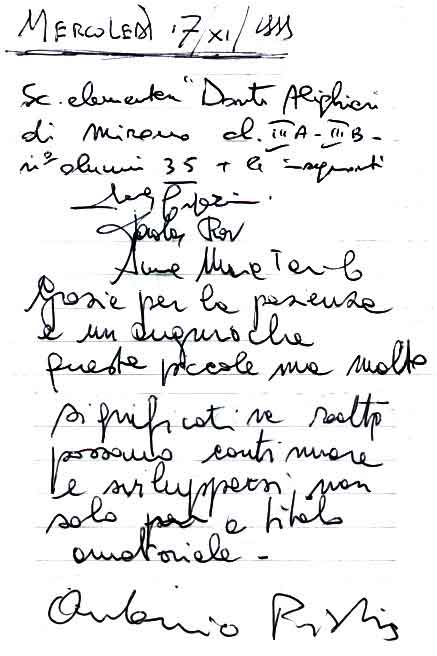 MERCOLEDÌ 17/XI/1999
Sc. elementari "Dante Alighieri
di Mirano cl. III A - III B -
n° alunni 35 + le insegnanti
Paola
Anna Maria
Grazie per la pazienza
e un augurio che
queste piccole ma molto
significative realtà
possano continuare
e svilupparsi non
solo a titolo
amatoriale -
Antonio